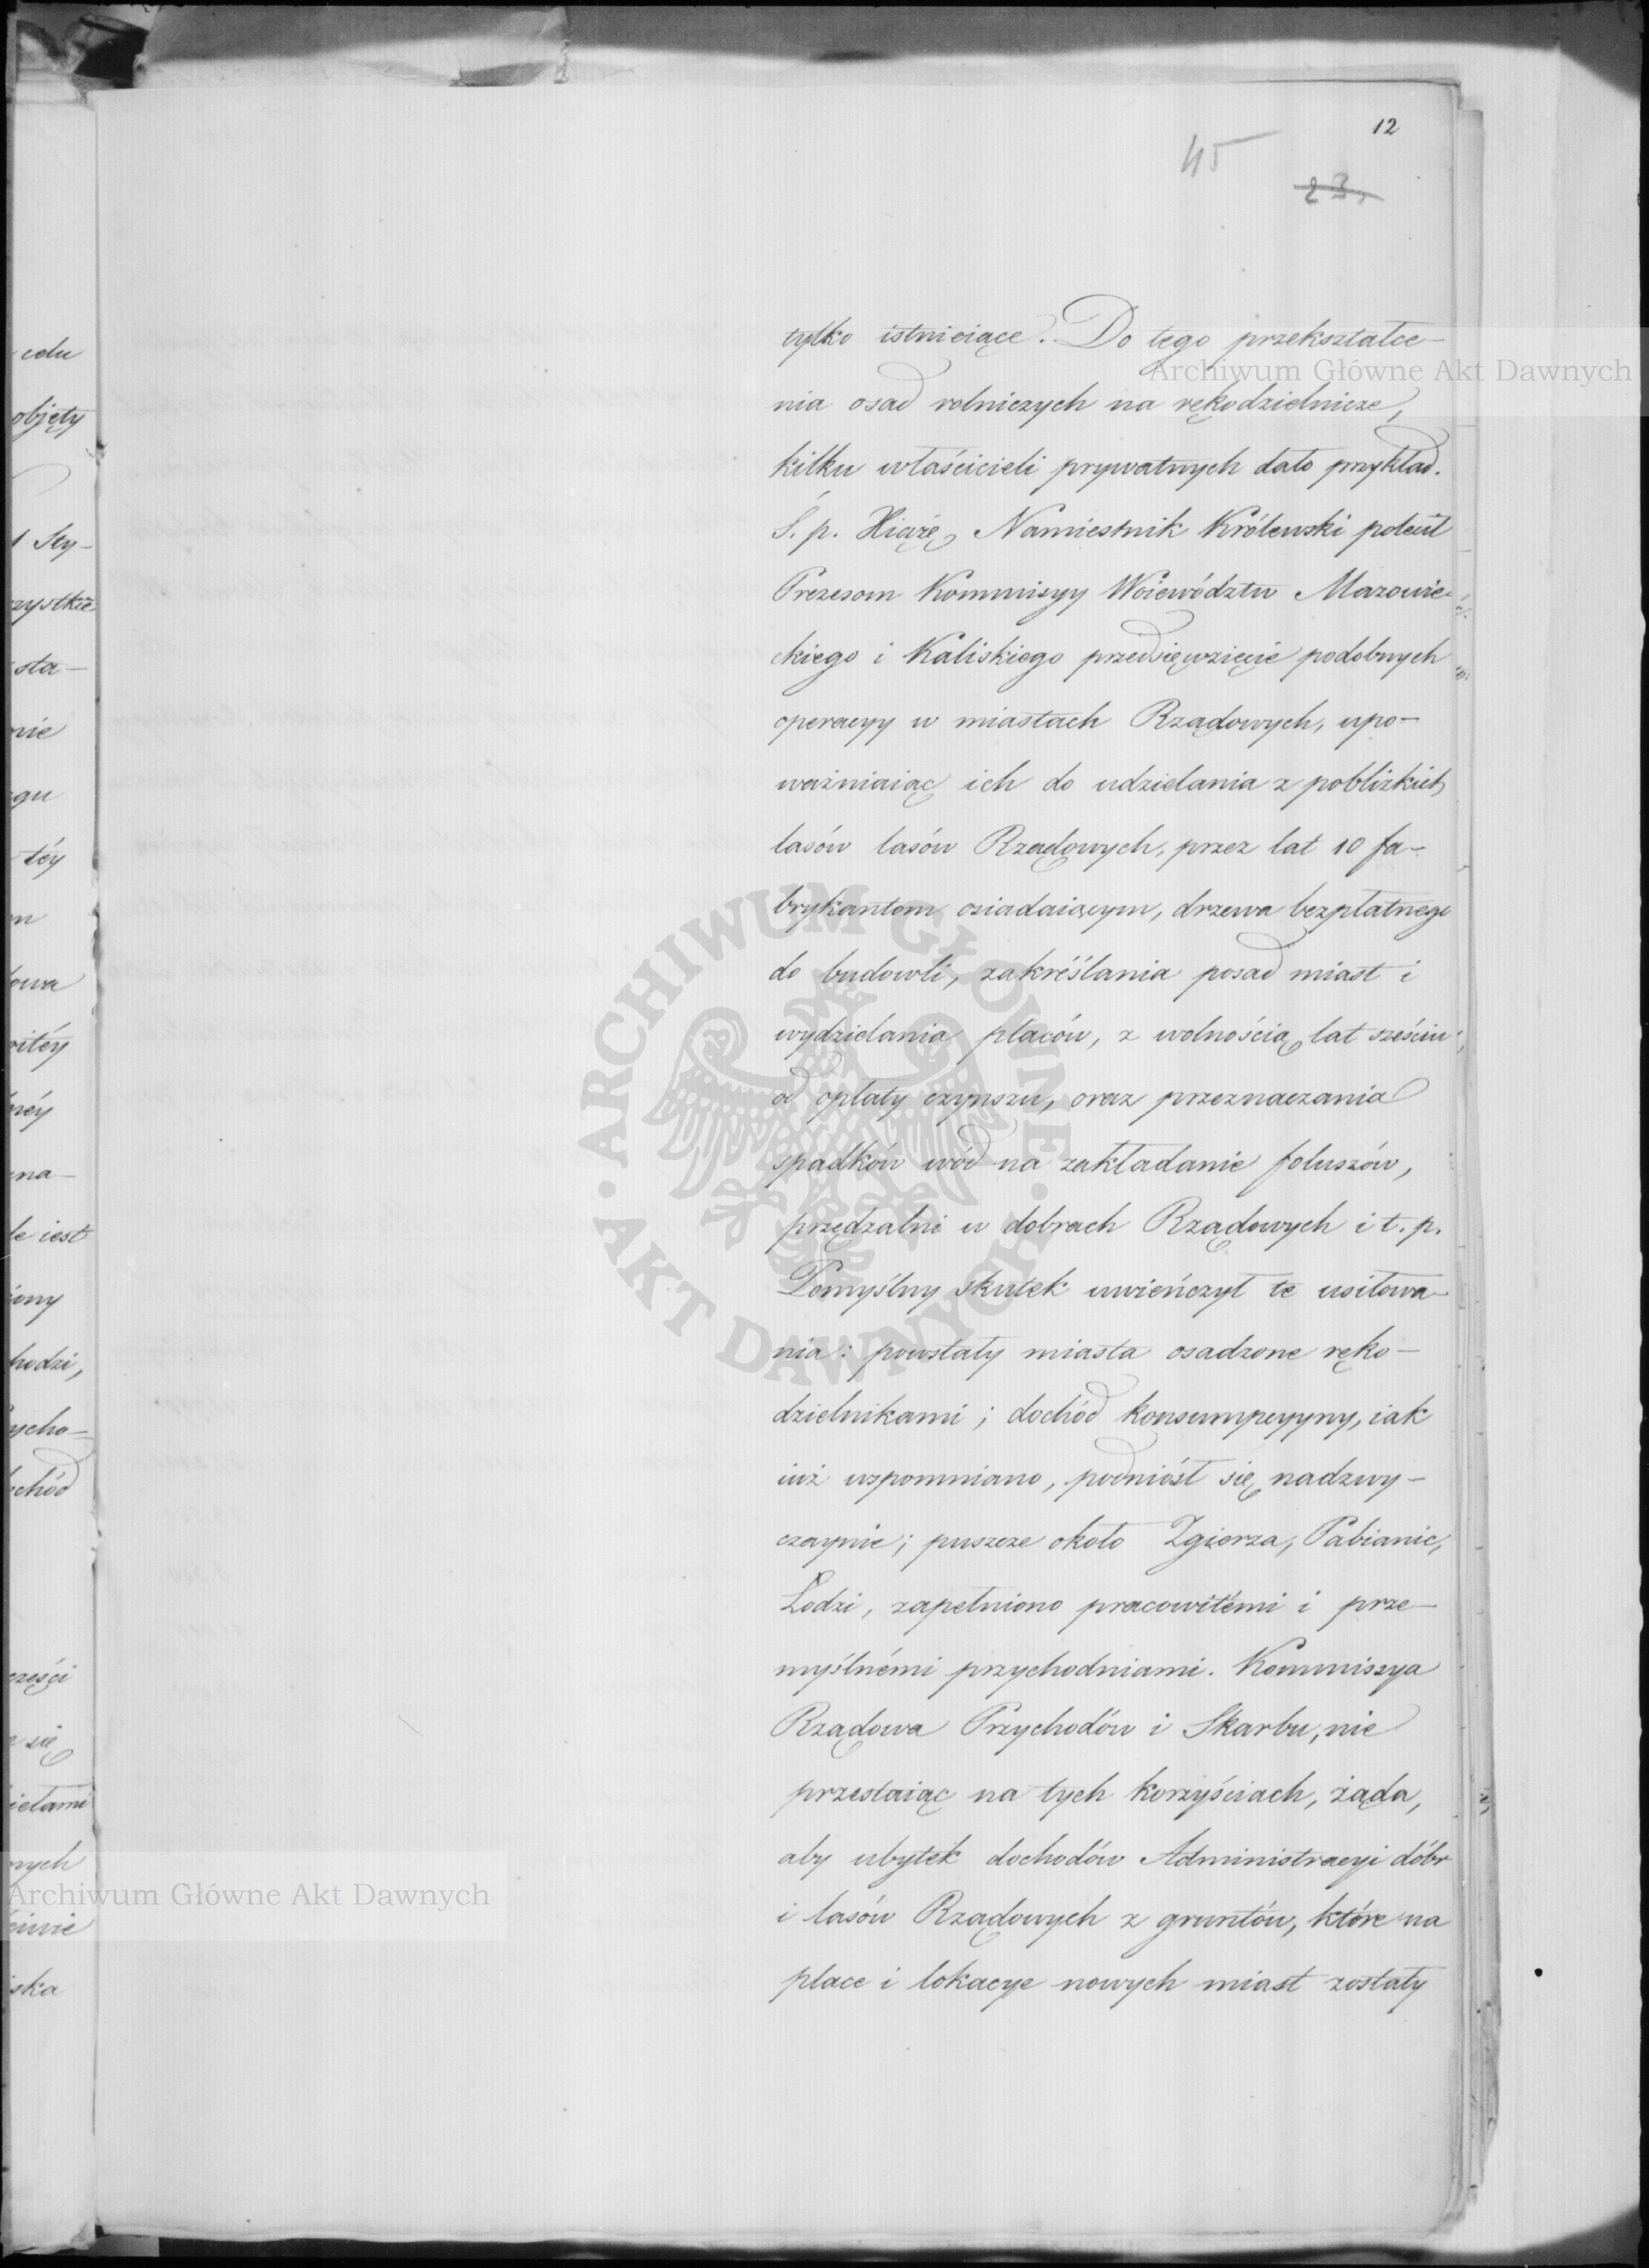 12
45
23.
tylko istnieiące. Do tego przekształce-
nia osad rolniczych na rękodzielnicze,
kilku właścicieli prywatnych dało przykład.
Ś. p. Xiążę Namiestnik Królewski polecił
Prezesom Kommissyy Woiewództw Mazowie-
ckiego i Kaliskiego przedsięwzięcie podobnych
operacyy w miastach Rządowych, upo-
ważniaiąc ich do udzielania z pobliżkich
lasów lasów Rządowych, przez lat 10 fa-
brykantom osiadaiącym, drzewa bezpłatnego
do budowli, zakréślania posad miast i
wydzielania placów, z wolnością lat sześciu
od opłaty czynszu, oraz przeznaczania
spadków wód na zakładanie foluszów,
przędzalni w dobrach Rządowych i t. p.
Pomyślny skutek uwieńczył te usiłowa-
nia: powstały miasta osadzone ręko-
dzielnikami; dochód konsumpcyyny, iak
iuż wspomniano, podniósł się nadzwy-
czaynie; puszcze około Zgierza, Pabianic,
Łodzi, zapełniono pracowitémi i prze-
myślnémi przychodniami. Kommissya
Rządowa Przychodów i Skarbu, nie
przestaiąc na tych korzyściach, żąda,
aby ubytek dochodów Administracyi dóbr
i lasów Rządowych z gruntów, które na
place i lokacye nowych miast zostały
cdu
objęty
Sty-
sta-
nie
gu
téy
na-
le iest
hodzi,
ycho-
chód
się
nych
ska
Archiwum Główne Akt Dawnych
Archiwum Główne Akt Dawnych
ARCHIWUM GŁÓWNE AKT DAWNYCH